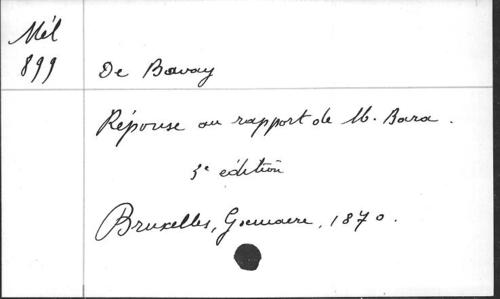 Mél
899
De Bavay
Réponse au rapport de M. Bara.
5e édition
Bruxelles, Goemaere, 1870.